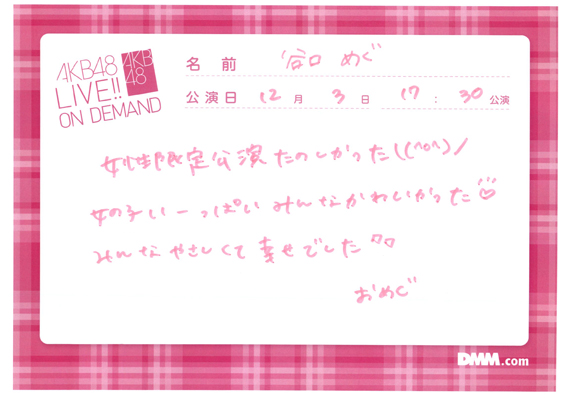 AKB48
LIVE!!
ON DEMAND
AKB
48
名前 谷口 めぐ
公演日 12月 3日 17:30公演
女性限定公演たのしかった\(^o^)/
女の子いーっぱいみんなかわいかった
みんなやさしくて幸せでした
おめぐ
DMM.com